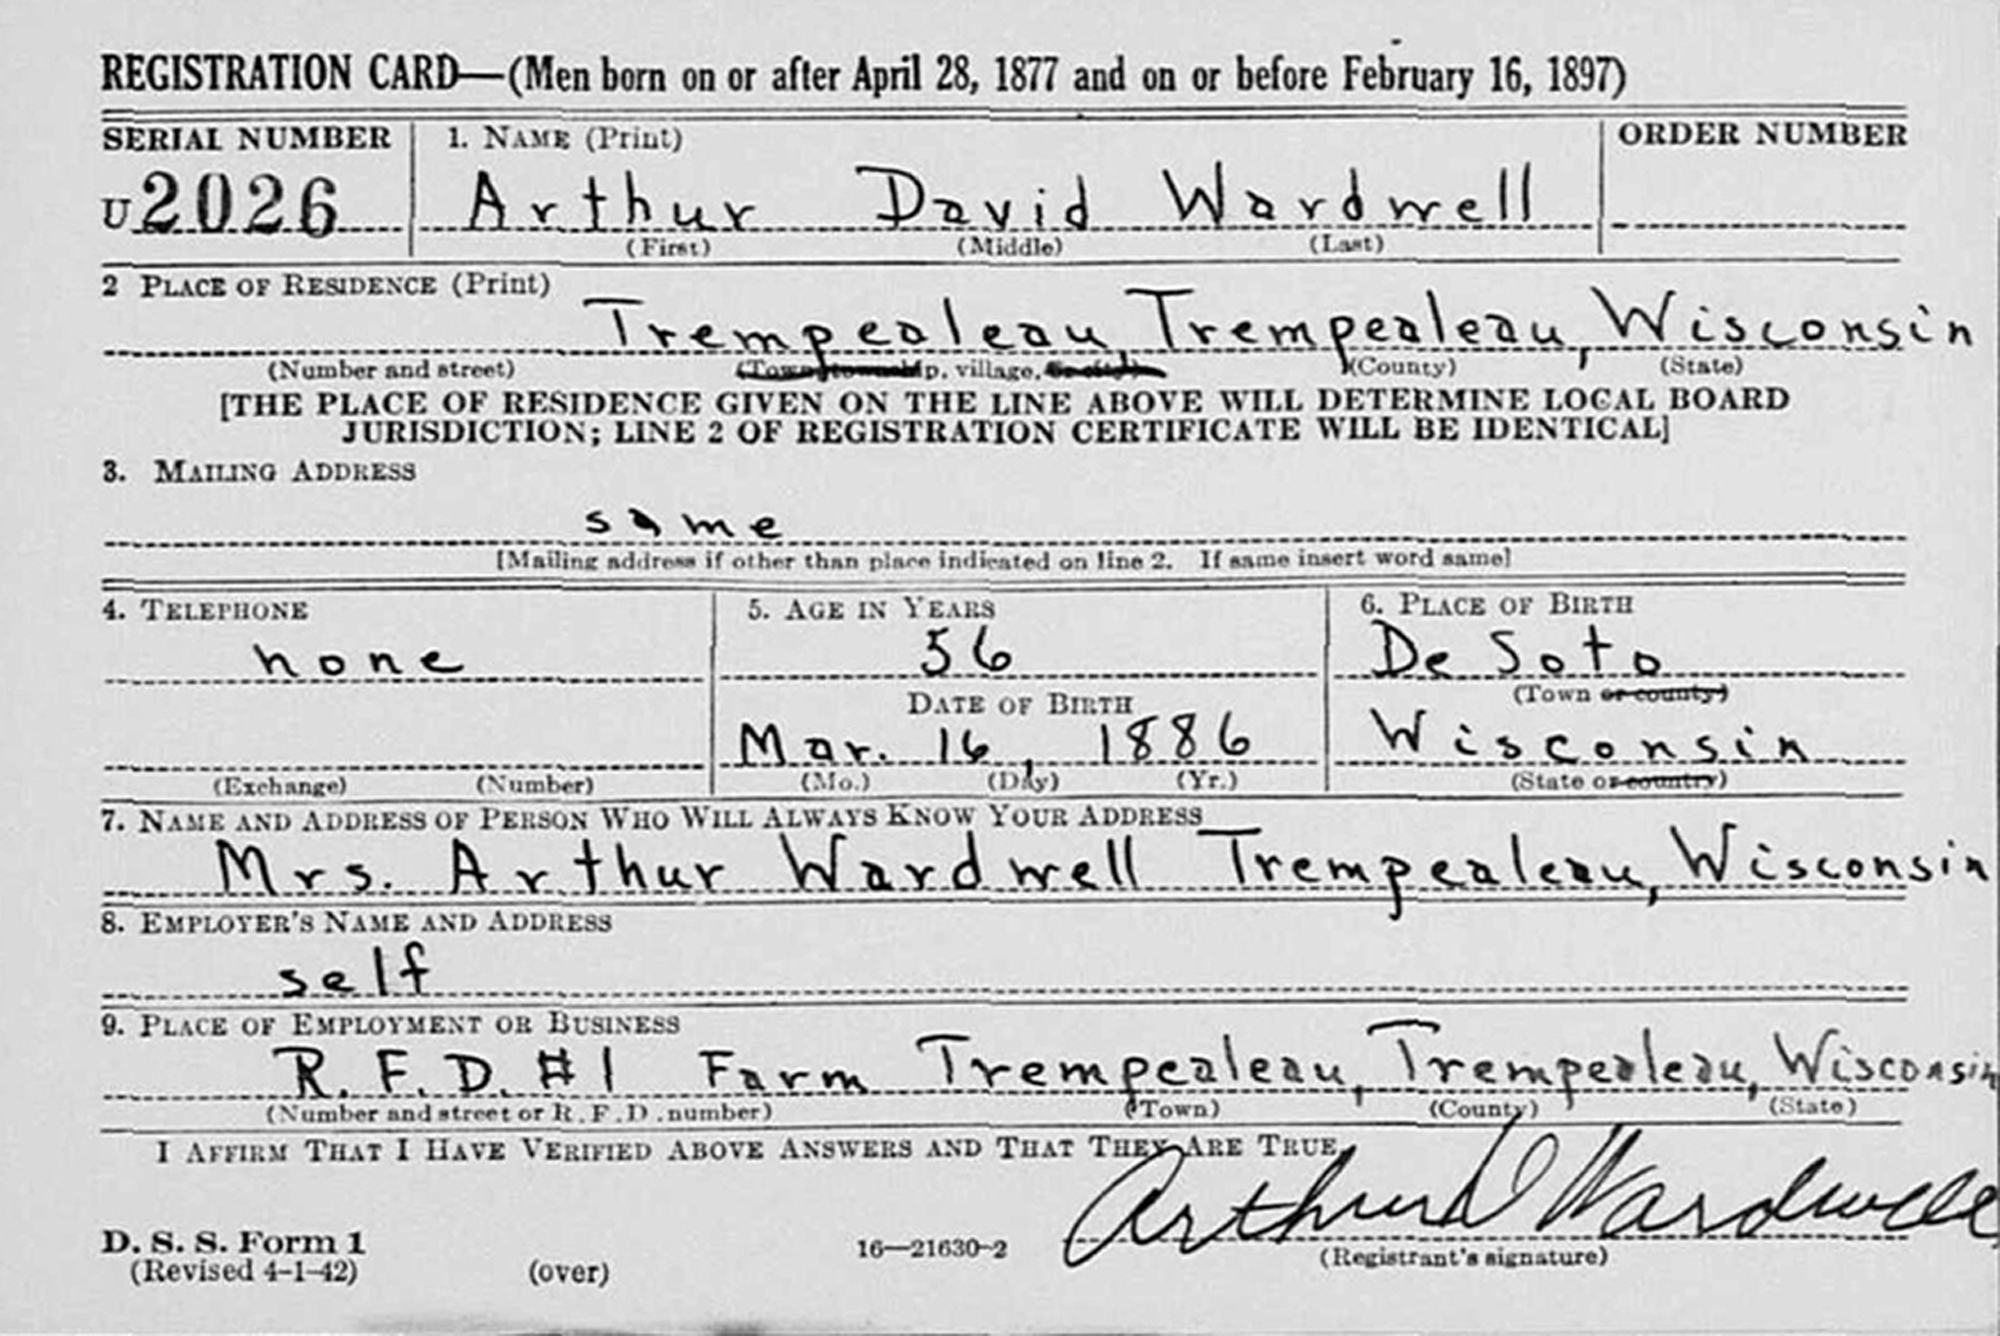 REGISTRATION CARD—(Men born on or after April 28, 1877 and on or before February 16, 1897)
SERIAL NUMBER 1. NAME (Print) ORDER NUMBER
U 2026 Arthur David Wardwell
(First) (Middle) (Last)
2 PLACE OF RESIDENCE (Print)
Trempealeau, Trempealeau, Wisconsin
(Number and street) (Town, township, village, or city) (County) (State)
[THE PLACE OF RESIDENCE GIVEN ON THE LINE ABOVE WILL DETERMINE LOCAL BOARD
JURISDICTION; LINE 2 OF REGISTRATION CERTIFICATE WILL BE IDENTICAL]
3. MAILING ADDRESS
same
[Mailing address if other than place indicated on line 2. If same insert word same]
4. TELEPHONE 5. AGE IN YEARS 6. PLACE OF BIRTH
none 56 De Soto
DATE OF BIRTH (Town or county)
Mar. 16, 1886 Wisconsin
(Exchange) (Number) (Mo.) (Day) (Yr.) (State or country)
7. NAME AND ADDRESS OF PERSON WHO WILL ALWAYS KNOW YOUR ADDRESS
Mrs. Arthur Wardwell Trempealeau, Wisconsin
8. EMPLOYER'S NAME AND ADDRESS
self
9. PLACE OF EMPLOYMENT OR BUSINESS
R.F.D. #1 Farm Trempealeau, Trempealeau, Wisconsin
(Number and street or R. F. D. number) (Town) (County) (State)
I AFFIRM THAT I HAVE VERIFIED ABOVE ANSWERS AND THAT THEY ARE TRUE.
Arthur D Wardwell
D. S. S. Form 1
(Revised 4-1-42) (over) 16—21630-2 (Registrant's signature)